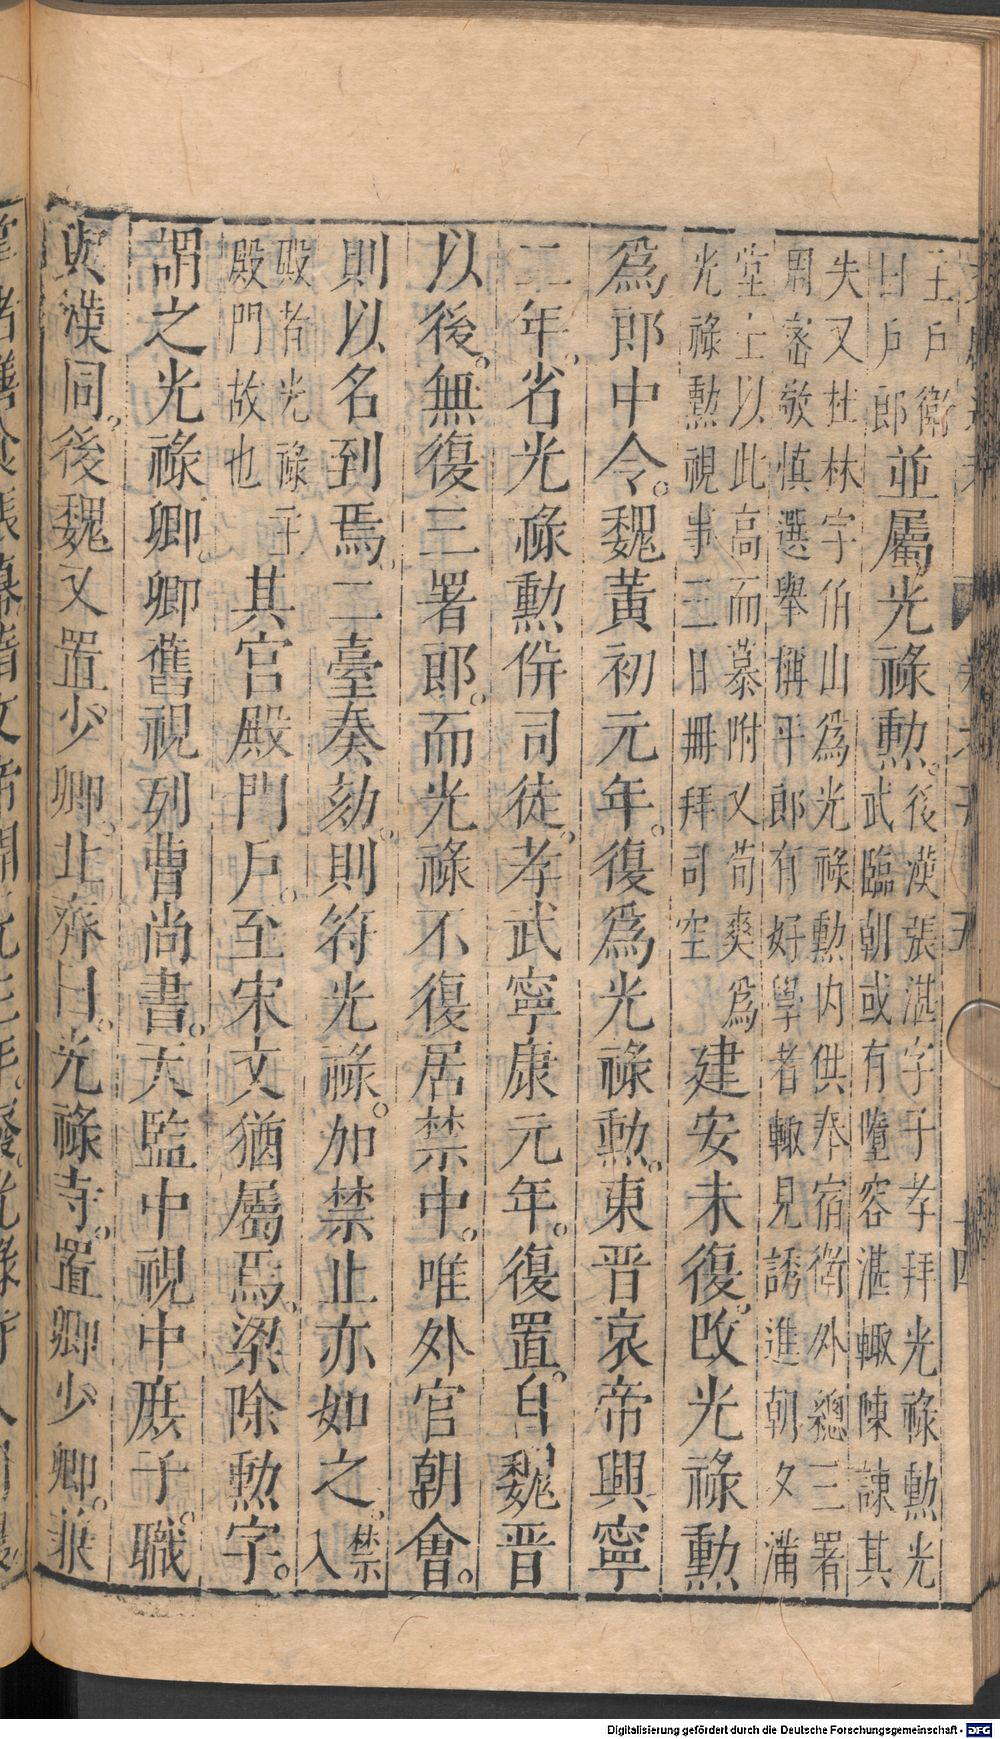 主戶衛
曰戶郎
並屬光祿勲。
後漢張湛字子孝拜光祿勲光
武臨朝或有墮容湛輙陳諫其
失又杜林字伯山爲光祿勲内供奉宿衛外總三署
周密敬慎選舉稱平郎有好學者輙見誘進朝夕滿
堂士以此高而慕附又荀爽爲
光祿勲視事三日册拜司空
建安末復改光祿勲
爲郎中令。魏黃初元年。復爲光祿勲。東晋哀帝興寧
二年。省光祿勲倂司徒。孝武寧康元年。復置。自魏晋
以後。無復三署郎。而光祿不復居禁中。唯外官朝會。
則以名到焉。二臺奏劾。則符光祿。加禁止亦如之。
禁
入
殿者光祿主
殿門故也
其宫殿門戶。至宋文猶屬焉。梁除勲字。
謂之光祿卿。卿舊視列曹尚書。天監中視中庶子。職
與漢同。後魏又置少卿。北齊曰。光祿寺。置卿少卿。兼
Digitalisierung gefördert durch die Deutsche Forschungsgemeinschaft - DFG